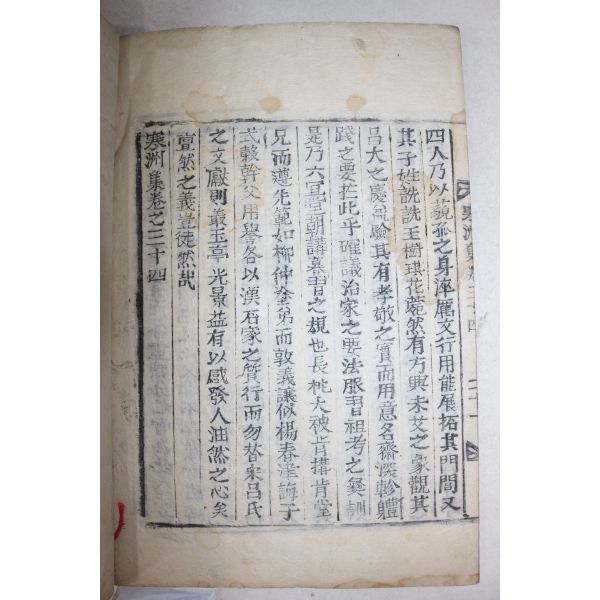 四人乃以藐孤之身淬厲文行用能展拓其門閭又
其子姓詵詵玉樹琪花藹然有方興未艾之象觀其
昌大之慶可驗其有孝敬之實而用意名齋深軫體
踐之要在此乎確議治家之要法服習祖考之彝訓
是乃六宜堂朝講暮習之規也長枕大被肯搆肯堂
兄而遵先範如柳仲塗弟而敦義讓似楊春津誨子
式穀幹父用譽各以漢石家之質行而勿替宋呂氏
之文獻則叢玉亭光景益有以感發人油然之心矣
亶然之義豈徒然哉
寒洲集卷之三十四
寒洲集卷三十四